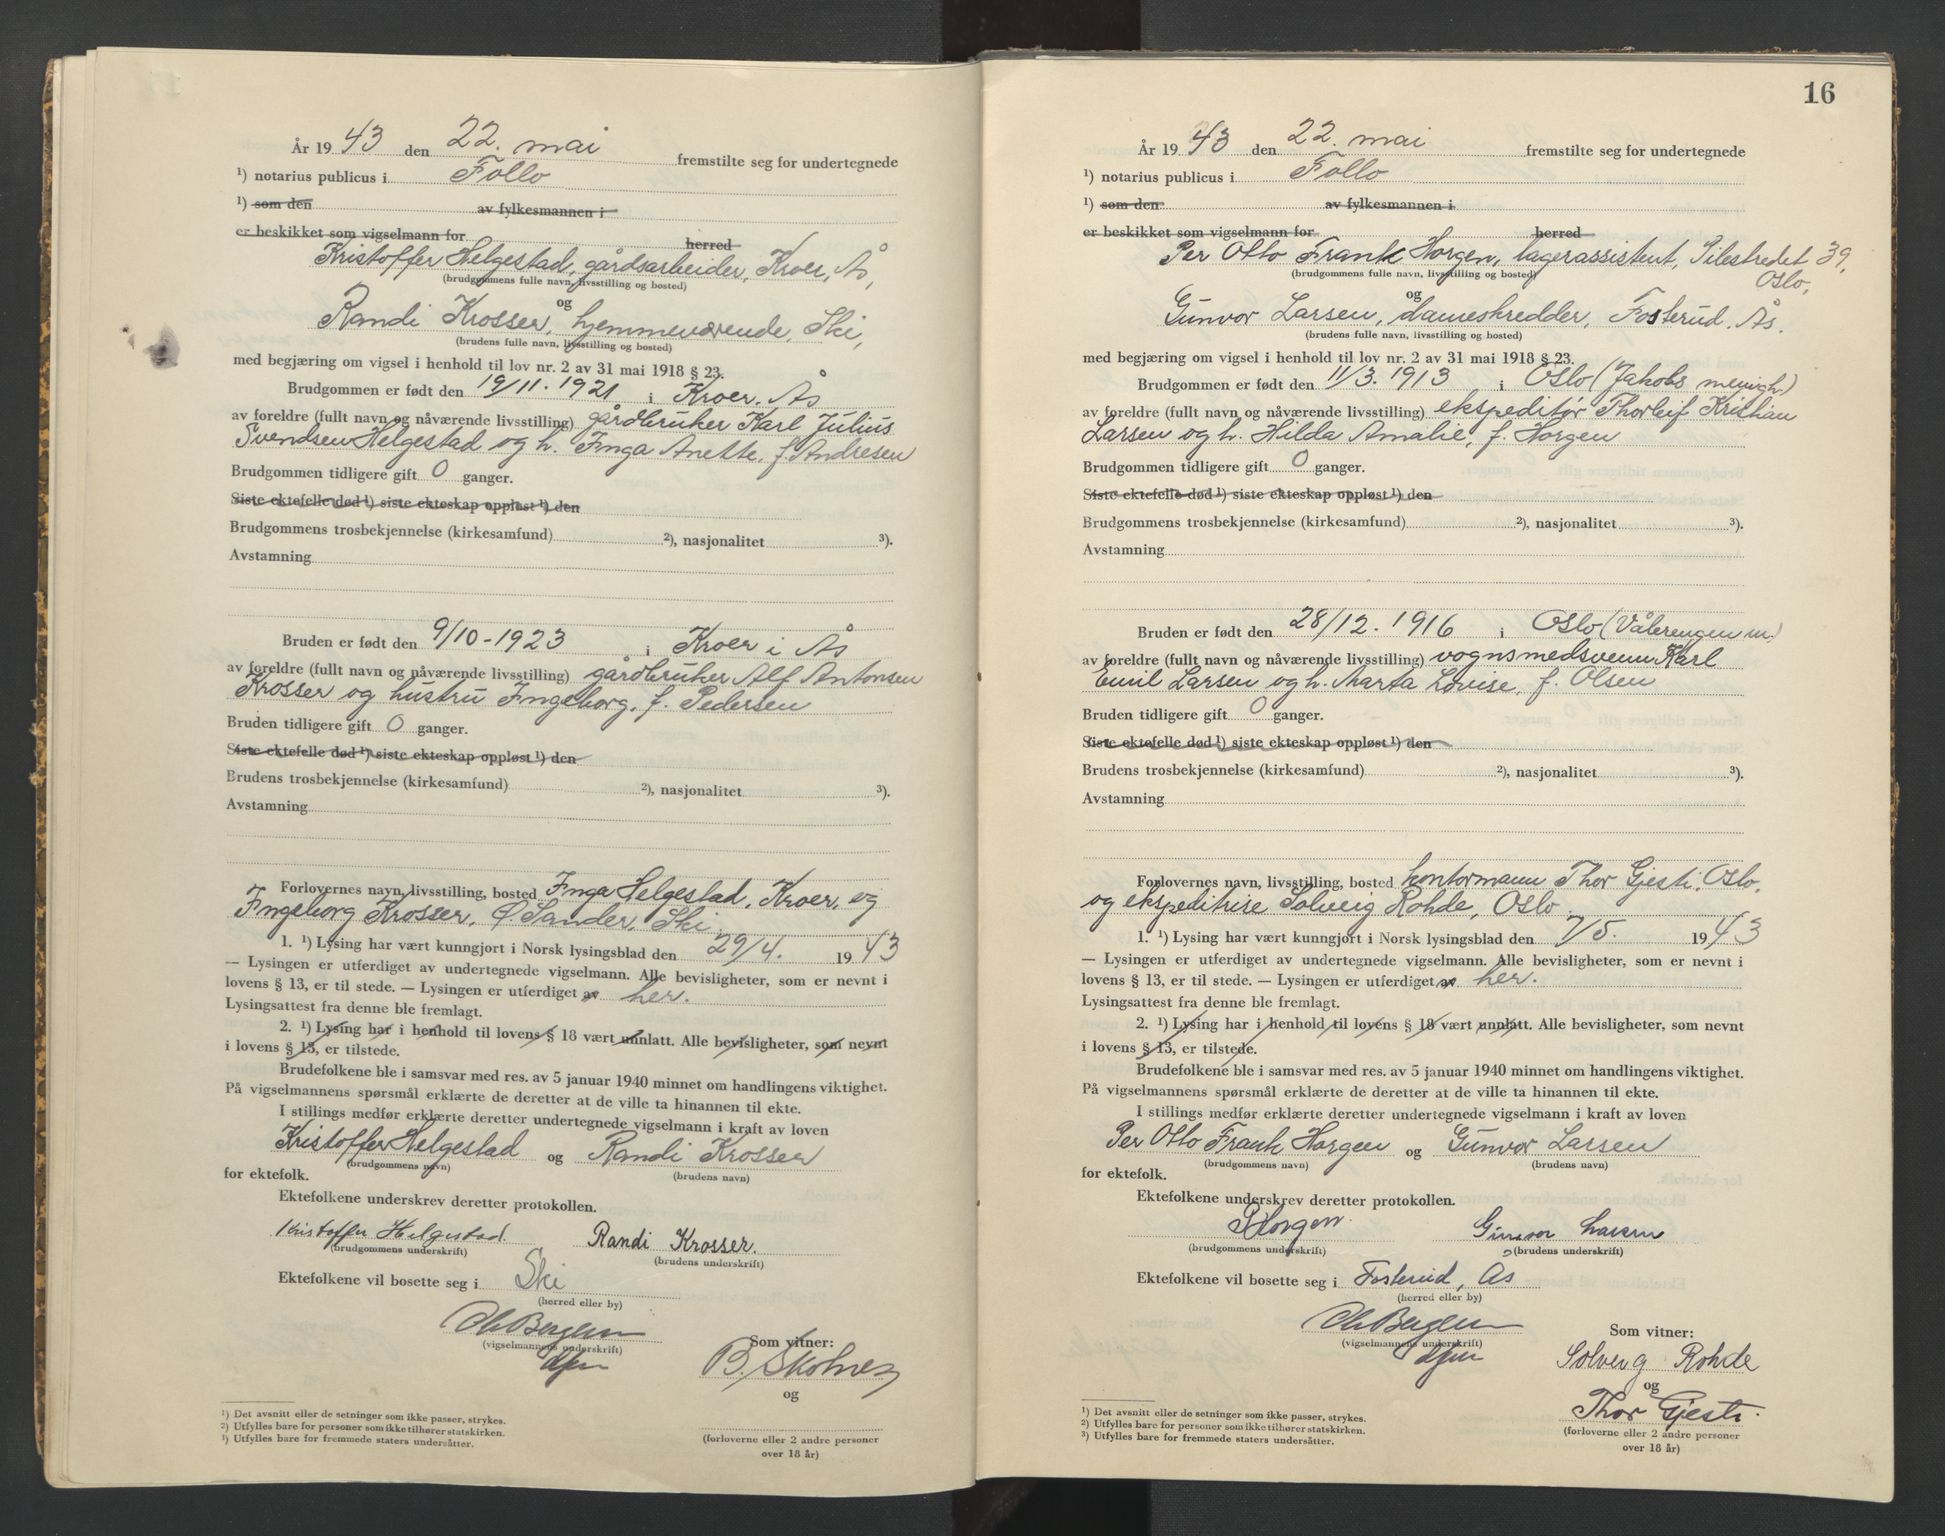 År 1943 den 22. mai fremstilte seg for undertegnede
¹) notarius publicus i Follo
¹) som den av fylkesmannen i
er beskikket som vigselmann for herred
Kristoffer Helgestad, gårdsarbeider, Kroer, Ås,
(brudgommens fulle navn, livsstilling og bosted)
og
Randi Krosser, hjemmeværende, Ski,
(brudens fulle navn, livsstilling og bosted)
med begjæring om vigsel i henhold til lov nr. 2 av 31 mai 1918 § 23.
Brudgommen er født den 19/11. 1921 i Kroer. Ås
av foreldre (fullt navn og nåværende livsstilling) gårdbruker Karl Julius
Svendsen Helgestad og h. Inga Anette, f. Andresen
Brudgommen tidligere gift 0 ganger.
Siste ektefelle død ¹) siste ekteskap oppløst ¹) den
Brudgommens trosbekjennelse (kirkesamfund) ²), nasjonalitet ³).
Avstamning
Bruden er født den 9/10-1923 i Kroer i Ås
av foreldre (fullt navn og nåværende livsstilling) gårdbruker Alf Antonsen
Krosser og hustru Ingeborg, f. Pedersen
Bruden tidligere gift 0 ganger.
Siste ektefelle død ¹) siste ekteskap oppløst ¹) den
Brudens trosbekjennelse (kirkesamfund) ²), nasjonalitet ³).
Avstamning
Forlovernes navn, livsstilling, bosted Inga Helgestad, Kroer, og
Ingeborg Krosser, Ø Sander, Ski
1. ¹) Lysing har vært kunngjort i Norsk lysingsblad den 29/4. 1943
— Lysingen er utferdiget av undertegnede vigselmann. Alle bevisligheter, som er nevnt i
lovens § 13, er til stede. — Lysingen er utferdiget av her.
Lysingsattest fra denne ble fremlagt.
2. ¹) Lysing har i henhold til lovens § 18 vært unnlatt. Alle bevisligheter, som nevnt
i lovens § 13, er tilstede.
Brudefolkene ble i samsvar med res. av 5 januar 1940 minnet om handlingens viktighet.
På vigselmannens spørsmål erklærte de deretter at de ville ta hinannen til ekte.
I stillings medfør erklærte deretter undertegnede vigselmann i kraft av loven
Kristoffer Helgestad og Randi Krosser
(brudgommens navn) (brudens navn)
for ektefolk.
Ektefolkene underskrev deretter protokollen.
Kristoffer Helgestad. Randi Krosser.
(brudgommens underskrift) (brudens underskrift)
Ektefolkene vil bosette seg i Ski
(herred eller by)
Chr Bergem
(vigselmannens underskrift)
Som vitner:
B. Skolnes
og
¹) Det avsnitt eller de setninger som ikke passer, strykes.
²) Utfylles bare for personer som ikke tilhører statskirken.
³) Utfylles bare for fremmede staters undersåtter.
(forloverne eller 2 andre personer
over 18 år)
16
År 1943 den 22. mai fremstilte seg for undertegnede
¹) notarius publicus i Follo
¹) som den av fylkesmannen i
er beskikket som vigselmann for herred
Per Otto Frank Horgen, lagerassistent, Pilestredet 39,
Oslo,
(brudgommens fulle navn, livsstilling og bosted)
og
Gunvor Larsen, dameskredder, Fosterud, Ås.
(brudens fulle navn, livsstilling og bosted)
med begjæring om vigsel i henhold til lov nr. 2 av 31 mai 1918 § 23.
Brudgommen er født den 11/3. 1913 i Oslo (Jakobs menigh.)
av foreldre (fullt navn og nåværende livsstilling) ekspeditør Thorleif Kristian
Larsen og h. Hilda Amalie, f. Horgen
Brudgommen tidligere gift 0 ganger.
Siste ektefelle død ¹) siste ekteskap oppløst ¹) den
Brudgommens trosbekjennelse (kirkesamfund) ²), nasjonalitet ³).
Avstamning
Bruden er født den 28/12. 1916 i Oslo (Vålerengen m.)
av foreldre (fullt navn og nåværende livsstilling) vognsmedsvenn Karl
Emil Larsen og h. Marta Lovise, f. Olsen
Bruden tidligere gift 0 ganger.
Siste ektefelle død ¹) siste ekteskap oppløst ¹) den
Brudens trosbekjennelse (kirkesamfund) ²), nasjonalitet ³).
Avstamning
Forlovernes navn, livsstilling, bosted kontormann Thor Gjesti, Oslo,
og ekspeditrise Solveig Rohde, Oslo.
1. ¹) Lysing har vært kunngjort i Norsk lysingsblad den 7/5. 1943
— Lysingen er utferdiget av undertegnede vigselmann. Alle bevisligheter, som er nevnt i
lovens § 13, er til stede. — Lysingen er utferdiget av her.
Lysingsattest fra denne ble fremlagt.
2. ¹) Lysing har i henhold til lovens § 18 vært unnlatt. Alle bevisligheter, som nevnt
i lovens § 13, er tilstede.
Brudefolkene ble i samsvar med res. av 5 januar 1940 minnet om handlingens viktighet.
På vigselmannens spørsmål erklærte de deretter at de ville ta hinannen til ekte.
I stillings medfør erklærte deretter undertegnede vigselmann i kraft av loven
Per Otto Frank Horgen og Gunvor Larsen
(brudgommens navn) (brudens navn)
for ektefolk.
Ektefolkene underskrev deretter protokollen.
P Horgen. Gunvor Larsen
(brudgommens underskrift) (brudens underskrift)
Ektefolkene vil bosette seg i Fosterud, Ås
(herred eller by)
Chr Bergem
(vigselmannens underskrift)
Som vitner:
Solveig Rohde
og
Thor Gjesti.
¹) Det avsnitt eller de setninger som ikke passer, strykes.
²) Utfylles bare for personer som ikke tilhører statskirken.
³) Utfylles bare for fremmede staters undersåtter.
(forloverne eller 2 andre personer
over 18 år)